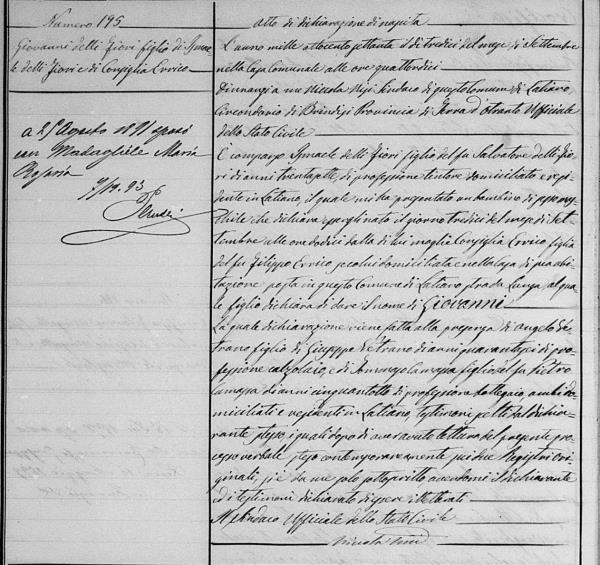 Numero 195
Giovanni delli Fiori figlio di Ismae
le delli Fiori e di Consiglia Errico
a 25 Agosto 1891 sposò
con Madaghiele Maria
Rosaria
Atto di dichiarazione di nascita
L'anno mille ottocento settanta il dì tredici del mese di Settembre
nella Casa Comunale alle ore quattordici
Dinnanzi a me Nicola Nisi Sindaco di questo Comune di Latiano,
Circondario di Brindisi Provincia di Terra d'Otranto Uffiziale
dello Stato Civile
È comparso Ismaele delli Fiori figlio del fu Salvatore delli Fio
ri di anni trentasette, di professione tintore domiciliato e resi
dente in Latiano, il quale mi ha presentato un bambino di sesso mas
chile che dichiara essergli nato il giorno tredici del mese di Set
tembre alle ore dodici dalla di lui moglie Consiglia Errico figlia
del fu Filippo Errico secolui domiciliata e nella casa di sua abi
tazione posta in questo Comune di Latiano strada Lunga, al qua
le figlio dichiara di dare il nome di Giovanni
La quale dichiarazione viene fatta alla presenza di Angelo De
trano figlio di Giuseppe Detrano di anni quarantasei di pro
fessione calzolaio, e di Tommaso Lamassa figlio del fu Pietro
Lamassa di anni cinquantotto di professione bottegaio ambi do
miciliati e residenti in Latiano testimoni scelti dal dichia
rante stesso, i quali dopo di aver avuto lettura del presente pro
cesso verbale steso contemporaneamente sui due Registri ori
ginali, si è da me solo sottoscritto avendomi il dichiarante
ed i testimoni dichiarato di essere illetterati
Il Sindaco Uffiziale dello Stato Civile
Nicola Nisi